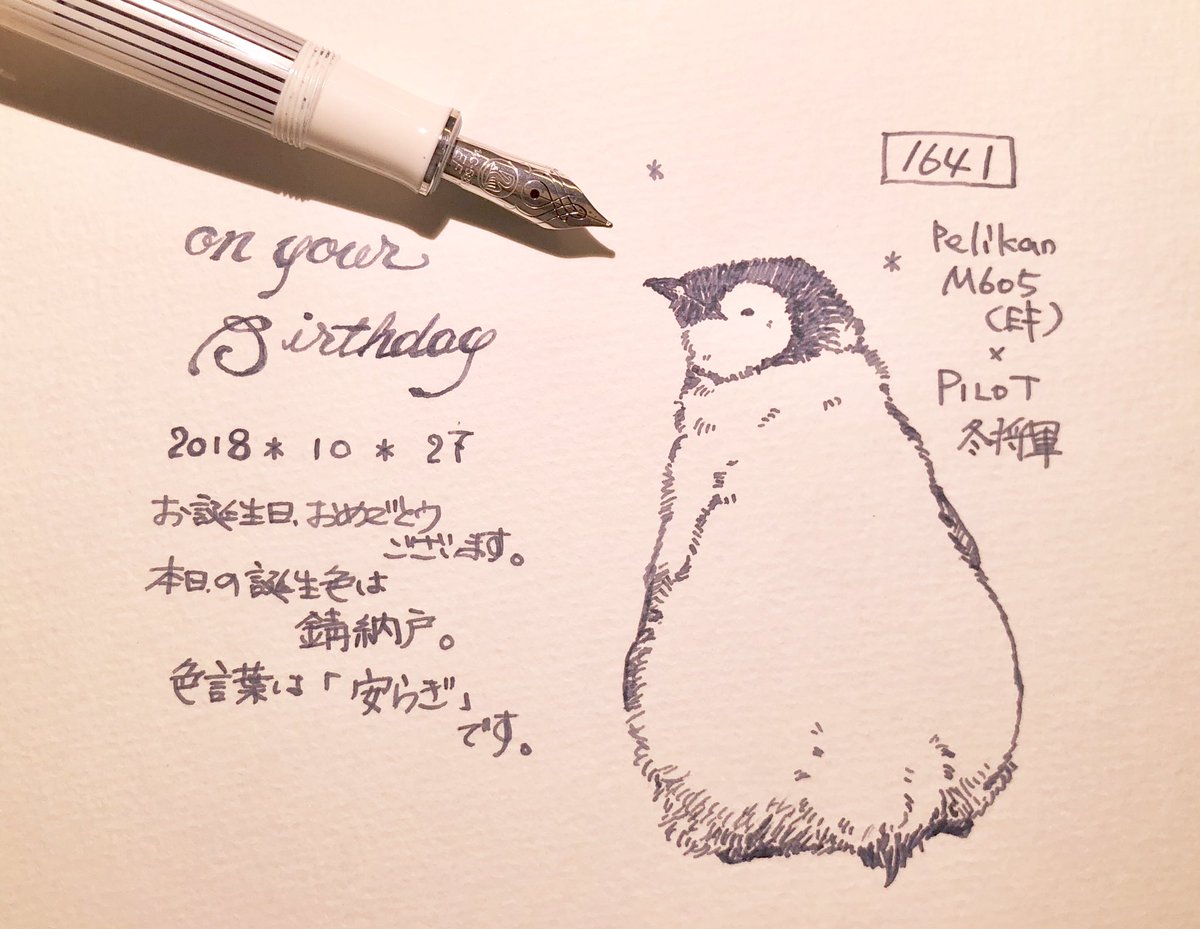 on your
Birthday
2018 * 10 * 27
お誕生日、おめでとう
ございます。
本日の誕生色は
錆納戸。
色言葉は「安らぎ」
です。
1641
Pelikan
M605
(EF)
×
PILOT
冬将軍